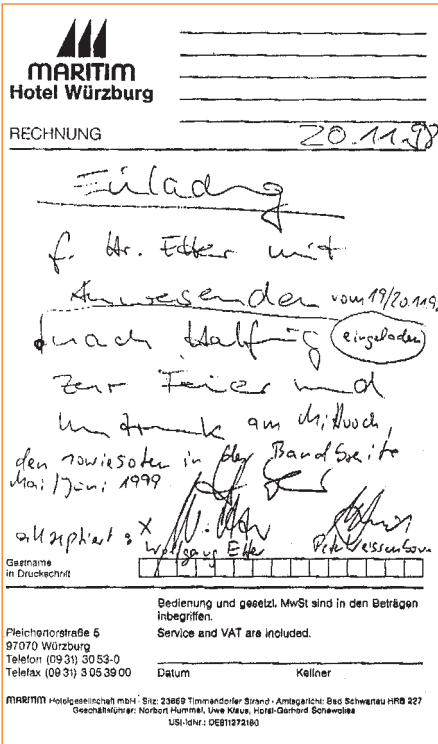 MARITIM
Hotel Würzburg
RECHNUNG 20.11.98
Einladung
f. Hr. Etter mit
Anwesenden vom 19/20.11.9
nach Halfing eingeladen
zur Feier und
Umtrunk am Mittwoch,
den sowiesoten in der Bandbreite
Mai/Juni 1999
akzeptiert: X
Wolfgang Etter Peter Weissenborn
Gastname
in Druckschrift
Bedienung und gesetzl. MwSt sind in den Beträgen
inbegriffen.
Service and VAT are included.
Pleichertorstraße 5
97070 Würzburg
Telefon (09 31) 30 53-0
Telefax (09 31) 3 05 39 00
Datum Kellner
MARITIM Hotelgesellschaft mbH · Sitz: 23669 Timmendorfer Strand · Amtsgericht: Bad Schwartau HRB 227
Geschäftsführer: Norbert Hummel, Uwe Klaus, Horst-Gerhard
USt-IdNr.: DE811272180